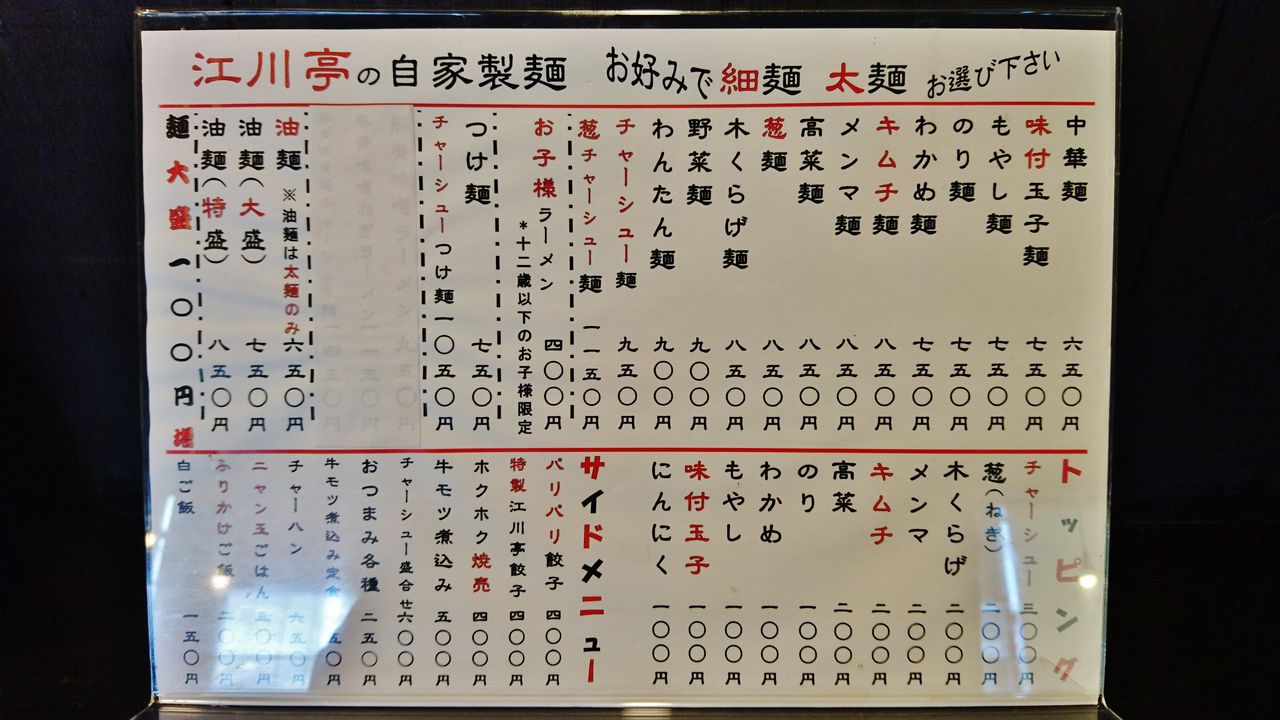 江川亭の自家製麺 お好みで細麺 太麺 お選び下さい
中華麺 六五〇円
味付玉子麺 七五〇円
もやし麺 七五〇円
のり麺 七五〇円
わかめ麺 七五〇円
キムチ麺 八五〇円
メンマ麺 八五〇円
高菜麺 八五〇円
葱麺 八五〇円
木くらげ麺 八五〇円
野菜麺 九〇〇円
わんたん麺 九〇〇円
チャーシュー麺 九五〇円
葱チャーシュー麺 一一五〇円
お子様ラーメン 四〇〇円
*十二歳以下のお子様限定
つけ麺 七五〇円
チャーシューつけ麺 一〇五〇円
油麺 ※油麺は太麺のみ 六五〇円
油麺(大盛) 七五〇円
油麺(特盛) 八五〇円
麺大盛一〇〇円増
トッピング
チャーシュー 三〇〇円
葱(ねぎ) 二〇〇円
木くらげ 二〇〇円
メンマ 二〇〇円
キムチ 二〇〇円
高菜 二〇〇円
のり 一〇〇円
わかめ 一〇〇円
もやし 一〇〇円
味付玉子 一〇〇円
にんにく 一〇〇円
サイドメニュー
パリパリ餃子 四〇〇円
特製江川亭餃子 四〇〇円
ホクホク焼売 四〇〇円
牛モツ煮込み 五〇〇円
チャーシュー盛合せ 六〇〇円
おつまみ各種 二五〇円
牛モツ煮込み定食 五〇円
チャーハン 六五〇円
ニャン玉ごはん 三〇〇円
ふりかけご飯 二〇〇円
白ご飯 一五〇円